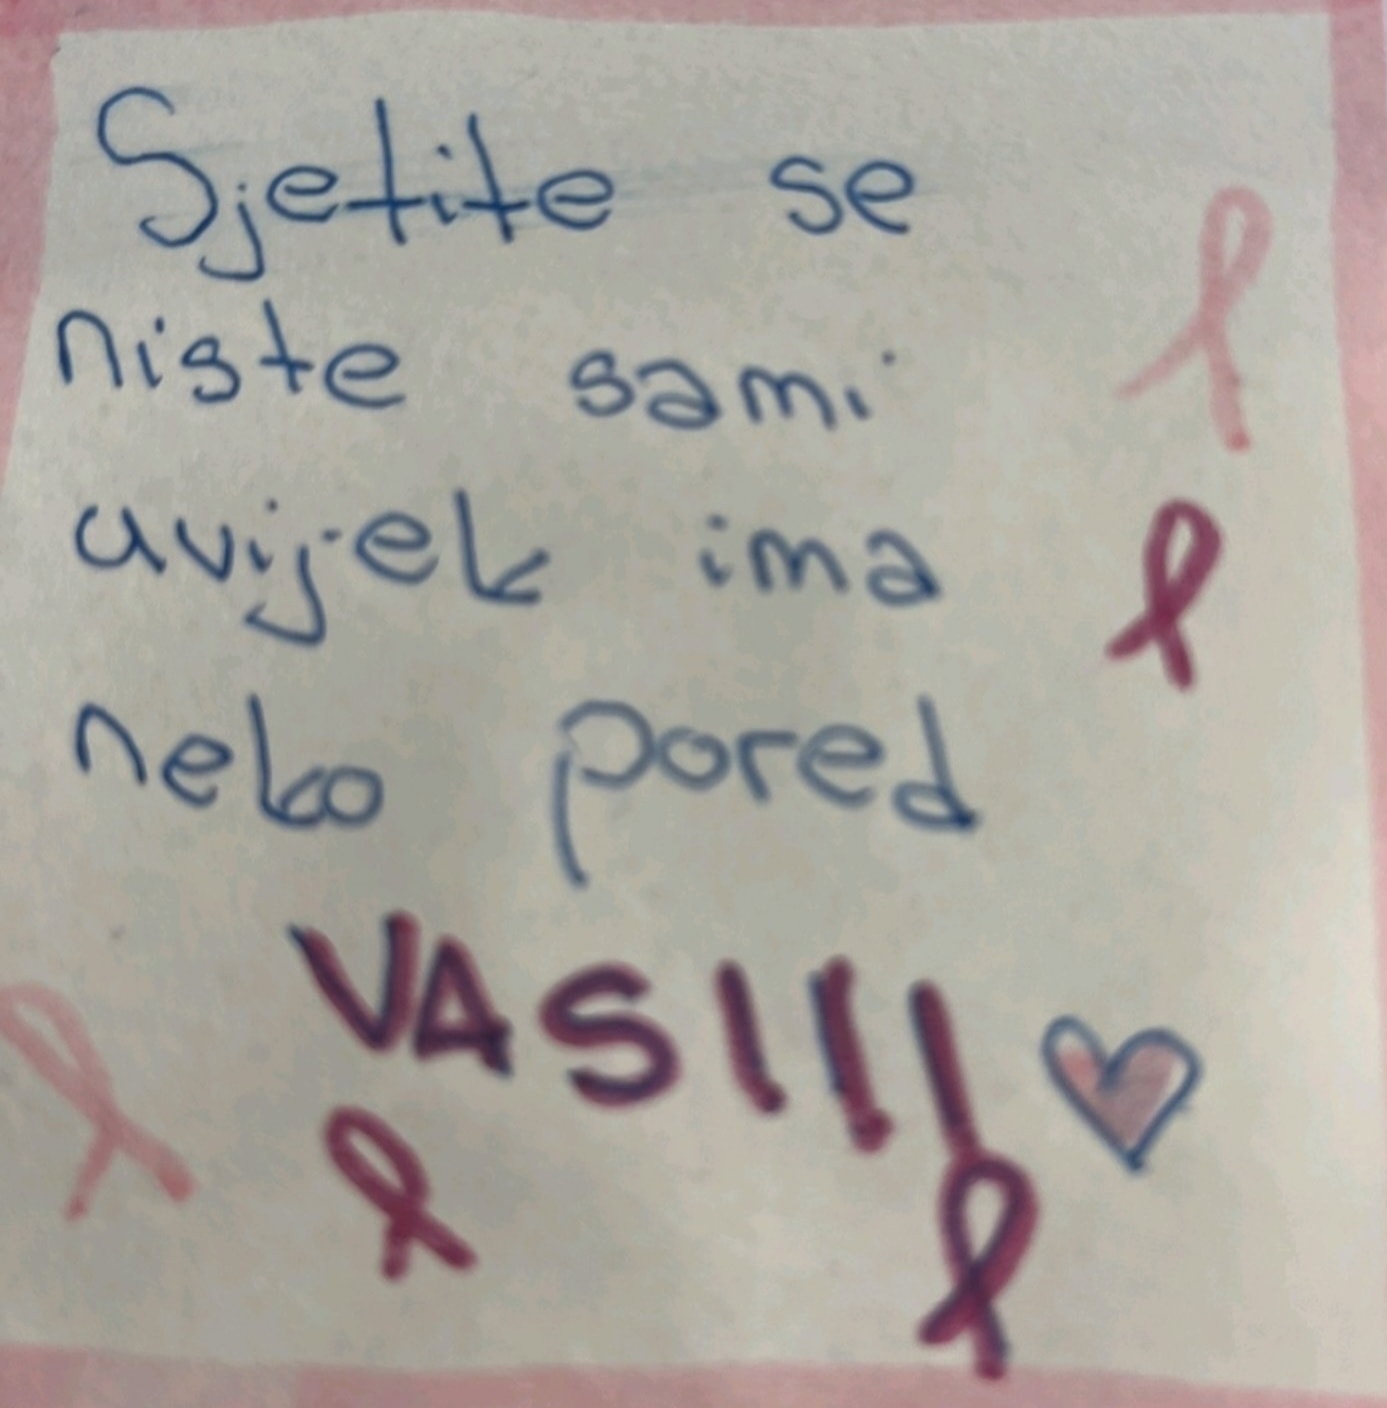 Sjetite se
niste sami
uvijek ima
neko pored
VAS!!!